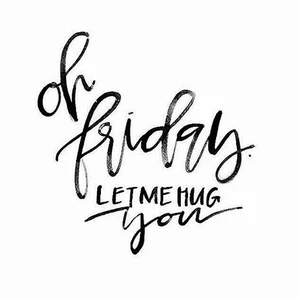 oh,
friday.
LET ME HUG
you